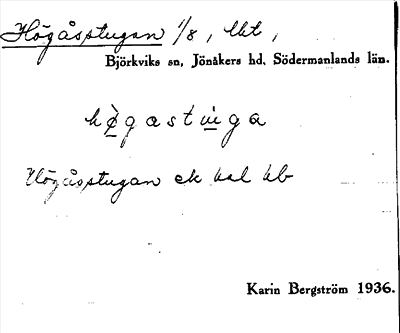 Högåsstugan 1/8, lht,
Björkviks sn, Jönåkers hd, Södermanlands län.
Högåsstugan ek kal kb
Karin Bergström 1936.